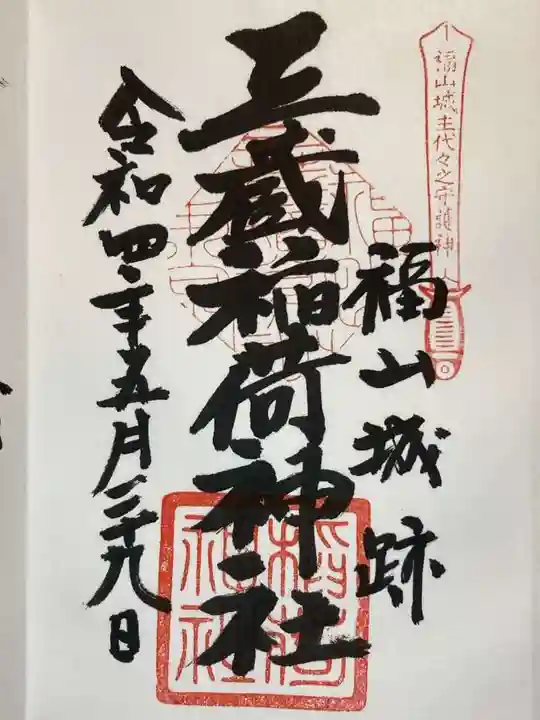 福山城主代々之守護神
福山城跡
三蔵稲荷神社
稲荷神社
令和四年五月二十九日